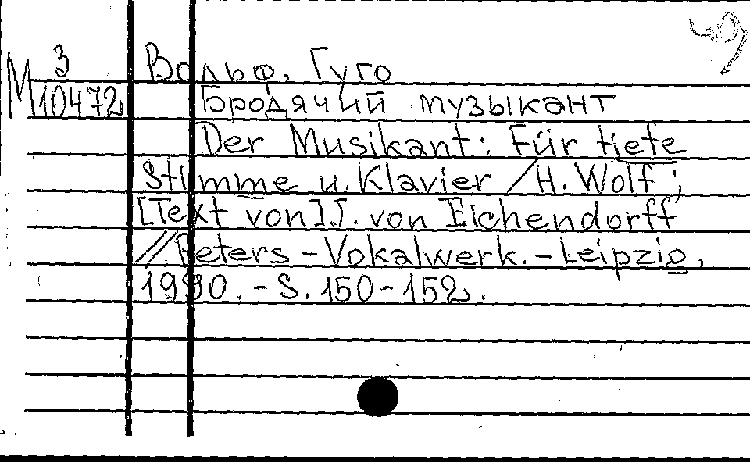 49
М 3 Вольф, Гуго
10472 Бродячий музыкант
Der Musikant: Für tiefe
Stimme u. Klavier / H. Wolf;
[Text von] J. von Eichendorff
// Peters-Vokalwerk. - Leipzig,
1990. - S. 150-152.